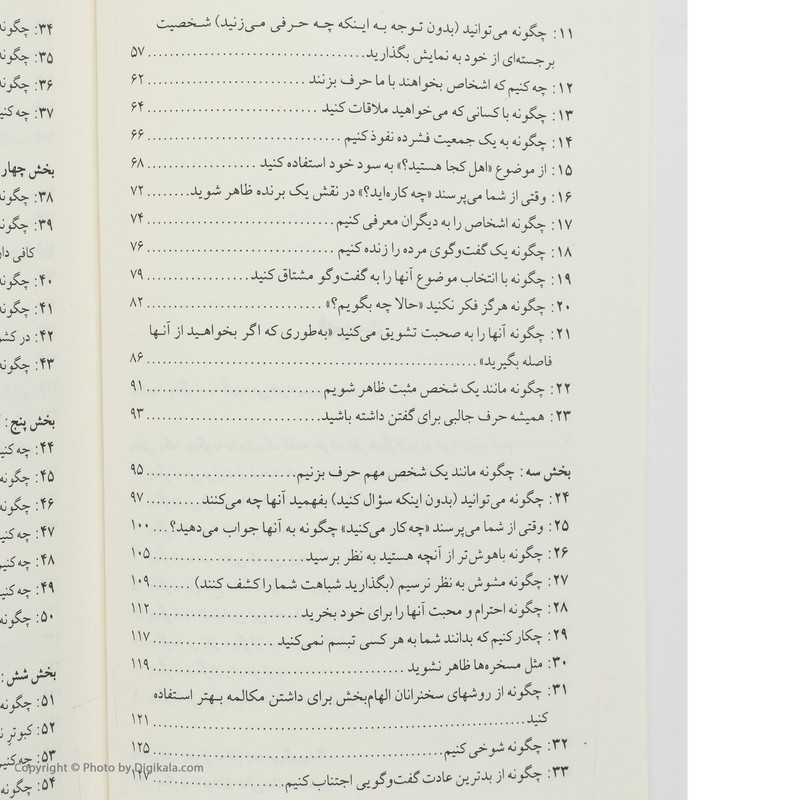 ۱۱: چگونه می‌توانید (بدون توجه به اینکه چه حرفی می‌زنید) شخصیت
برجسته‌ای از خود به نمایش بگذارید ۵۷
۱۲: چه کنیم که اشخاص بخواهند با ما حرف بزنند ۶۲
۱۳: چگونه با کسانی که می‌خواهید ملاقات کنید ۶۴
۱۴: چگونه به یک جمعیت فشرده نفوذ کنیم ۶۶
۱۵: از موضوع «اهل کجا هستید؟» به سود خود استفاده کنید ۶۸
۱۶: وقتی از شما می‌پرسند «چه کاره‌اید؟» در نقش یک برنده ظاهر شوید ۷۲
۱۷: چگونه اشخاص را به دیگران معرفی کنیم ۷۴
۱۸: چگونه یک گفت‌وگوی مرده را زنده کنیم ۷۶
۱۹: چگونه با انتخاب موضوع آنها را به گفت‌وگو مشتاق کنید ۷۹
۲۰: چگونه هرگز فکر نکنید «حالا چه بگویم؟» ۸۲
۲۱: چگونه آنها را به صحبت تشویق می‌کنید «به‌طوری که اگر بخواهید از آنها
فاصله بگیرید» ۸۶
۲۲: چگونه مانند یک شخص مثبت ظاهر شویم ۹۱
۲۳: همیشه حرف جالبی برای گفتن داشته باشید ۹۳
بخش سه: چگونه مانند یک شخص مهم حرف بزنیم ۹۵
۲۴: چگونه می‌توانید (بدون اینکه سؤال کنید) بفهمید آنها چه می‌کنند ۹۷
۲۵: وقتی از شما می‌پرسند «چه کار می‌کنید» چگونه به آنها جواب می‌دهید؟ ۱۰۰
۲۶: چگونه باهوش‌تر از آنچه هستید به نظر برسید ۱۰۵
۲۷: چگونه مشوش به نظر نرسیم (بگذارید شباهت شما را کشف کنند) ۱۰۹
۲۸: چگونه احترام و محبت آنها را برای خود بخرید ۱۱۲
۲۹: چکار کنیم که بدانند شما به هر کسی تبسم نمی‌کنید ۱۱۷
۳۰: مثل مسخره‌ها ظاهر نشوید ۱۱۹
۳۱: چگونه از روشهای سخنرانان الهام‌بخش برای داشتن مکالمه بهتر استفاده
کنید ۱۲۱
۳۲: چگونه شوخی کنیم ۱۲۵
۳۳: چگونه از بدترین عادت گفت‌وگویی اجتناب کنیم ۱۲۷
۳۴: چگونه
۳۵: چگونه
۳۶: چگونه
۳۷: چه کنیم
بخش چهار
۳۸: چگونه
۳۹: چگونه
کافی
۴۰: چگونه
۴۱: چگونه
۴۲: در
۴۳: چگونه
بخش پنج:
۴۴: چه
۴۵: چگونه
۴۶: چگونه
۴۷: چه
۴۸: چه
۴۹: چه
۵۰: چگونه
بخش شش:
۵۱: چگونه
۵۲: کبوتر
۵۳: چه
۵۴: چگونه
Copyright © Photo by Digikala.com